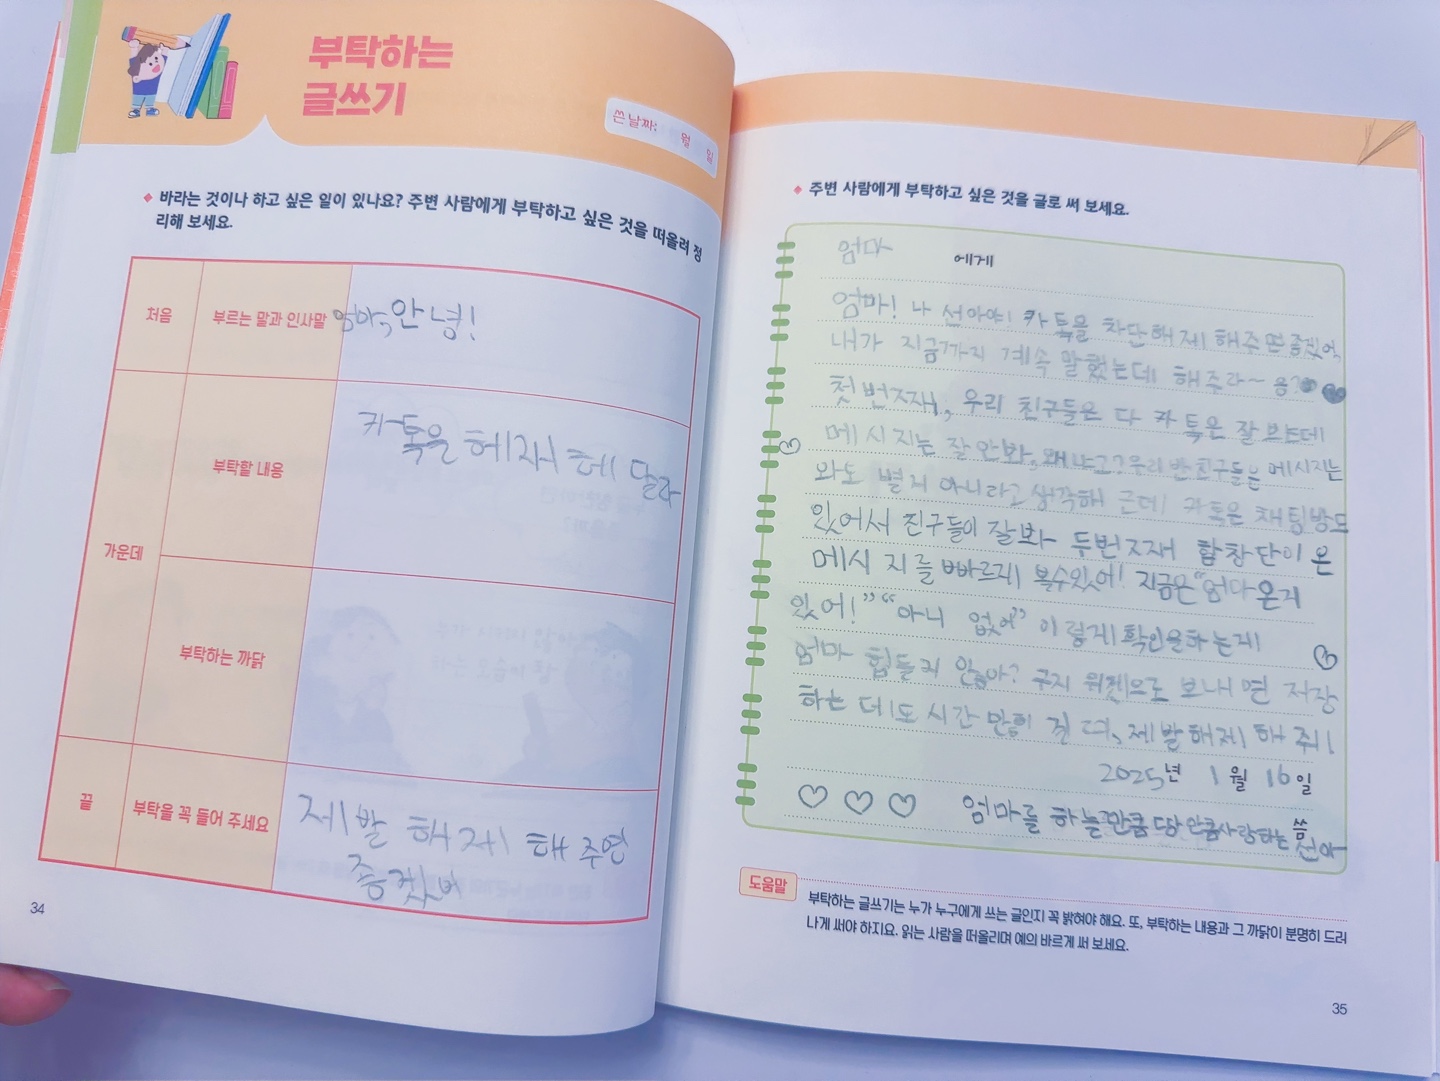 부탁하는
글쓰기
쓴 날짜: 월 일
◆ 바라는 것이나 하고 싶은 일이 있나요? 주변 사람에게 부탁하고 싶은 것을 떠올려 정
리해 보세요.
처음
부르는 말과 인사말
엄마, 안녕!
가운데
부탁할 내용
카톡은 헤재 헤 달라
부탁하는 까닭
끝
부탁을 꼭 들어 주세요
제발 해제 해 주면
좋겠어
34
◆ 주변 사람에게 부탁하고 싶은 것을 글로 써 보세요.
엄마 에게
엄마! 나 선아야! 카톡을 차단해제 해주면 좋겠어,
내가 지금까지 계속 말했는데 해주라~ 응?
첫번째, 우리 친구들은 다 카톡은 잘 보는데
메시지는 잘 안봐, 왜냐고? 우리 반 친구들은 메시지는
와도 별거 아니라고 생각해 근데 카톡은 채팅방도
있어서 친구들이 잘봐 두번째 합창단이 온
메시지를 빠르게 볼수있어! 지금은 "엄마 온거
있어!" "아니 없어" 이렇게 확인을하는게
엄마 힘들지 않아? 굳이 위젯으로 보내면 저장
하는 데도 시간 많이 걸려, 제발 해제 해 줘!
2025년 1월 16일
엄마를 하늘만큼 땅만큼사랑하는 선아 씀
도움말
부탁하는 글쓰기는 누가 누구에게 쓰는 글인지 꼭 밝혀야 해요. 또, 부탁하는 내용과 그 까닭이 분명히 드러
나게 써야 하지요. 읽는 사람을 떠올리며 예의 바르게 써 보세요.
35